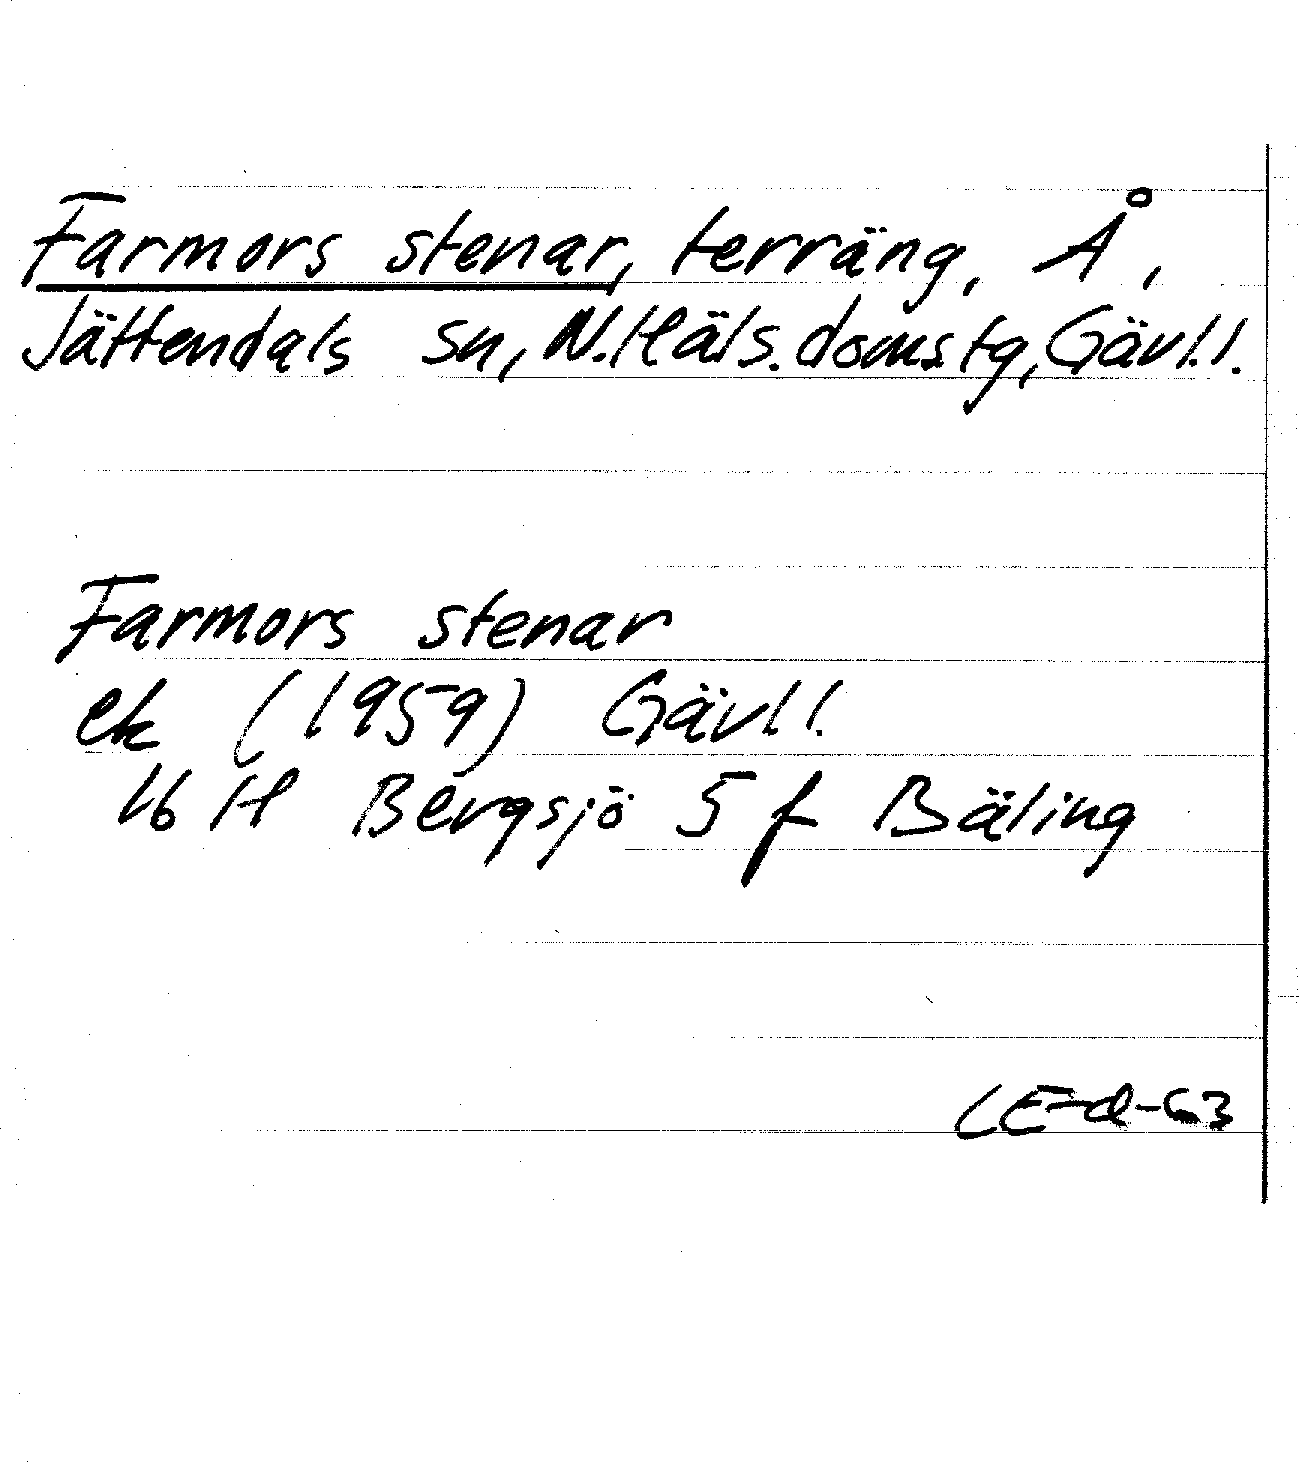 Farmors stenar, terräng, Å,
Jättendals sn, N.Häls.domstg, Gävl.l.
Farmors stenar
ek (1959) Gävl l.
16 H Bergsjö 5 f Bäling
LE-d-63